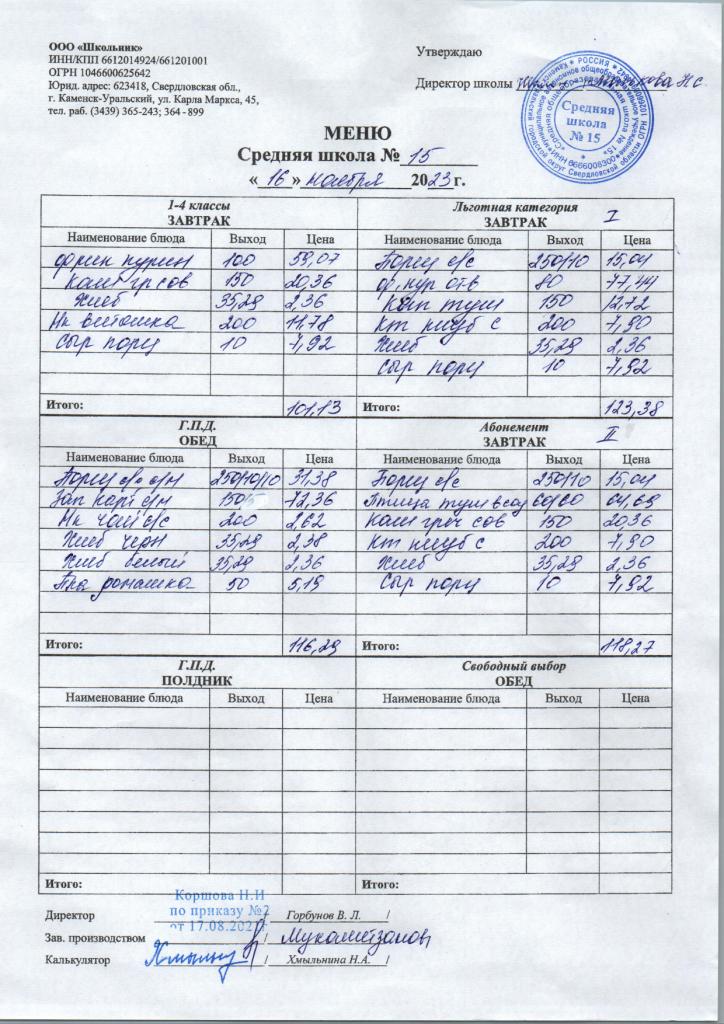 ООО «Школьник»
ИНН/КПП 6612014924/661201001
ОГРН 1046600625642
Юрид. адрес: 623418, Свердловская обл.,
г. Каменск-Уральский, ул. Карла Маркса, 45,
тел. раб. (3439) 365-243; 364 - 899
Утверждаю
Директор школы
Средняя
школа
№ 15
МЕНЮ
Средняя школа № 15
« 16 » ноября 2023 г.
1-4 классы
ЗАВТРАК
Наименование блюда Выход Цена
100 59,07
Каша гр сов 150 20,36
Хлеб 35,29 2,36
Нк витошка 200 11,78
Сыр порц 10 7,92
Итого: 101,13
Льготная категория
ЗАВТРАК I
Наименование блюда Выход Цена
Борщ с/с 250/10 15,04
ф. кур отв 80 77,44
Кап туш 150 12,72
Кт клуб с 200 7,90
Хлеб 35,29 2,36
Сыр порц 10 7,92
Итого: 123,38
Г.П.Д.
ОБЕД
Наименование блюда Выход Цена
Борщ 250/10/10 31,38
Зап карт 72,36
Нк чай с/с 200 2,62
Хлеб черн 35,29 2,38
Хлеб белый 35,29 2,36
ромашка 50 5,19
Итого: 116,29
Абонемент
ЗАВТРАК II
Наименование блюда Выход Цена
Борщ с/с 250/10 15,04
Птица туш в соус 60/60 64,69
Каша греч сов 150 20,36
Кт клуб с 200 7,90
Хлеб 35,29 2,36
Сыр порц 10 7,92
Итого: 118,27
Г.П.Д.
ПОЛДНИК
Наименование блюда Выход Цена
Итого:
Свободный выбор
ОБЕД
Наименование блюда Выход Цена
Итого:
Коршова Н.И
по приказу №2
Директор / Горбунов В. Л. /
Зав. производством /
Калькулятор / Хмыльнина Н.А. /